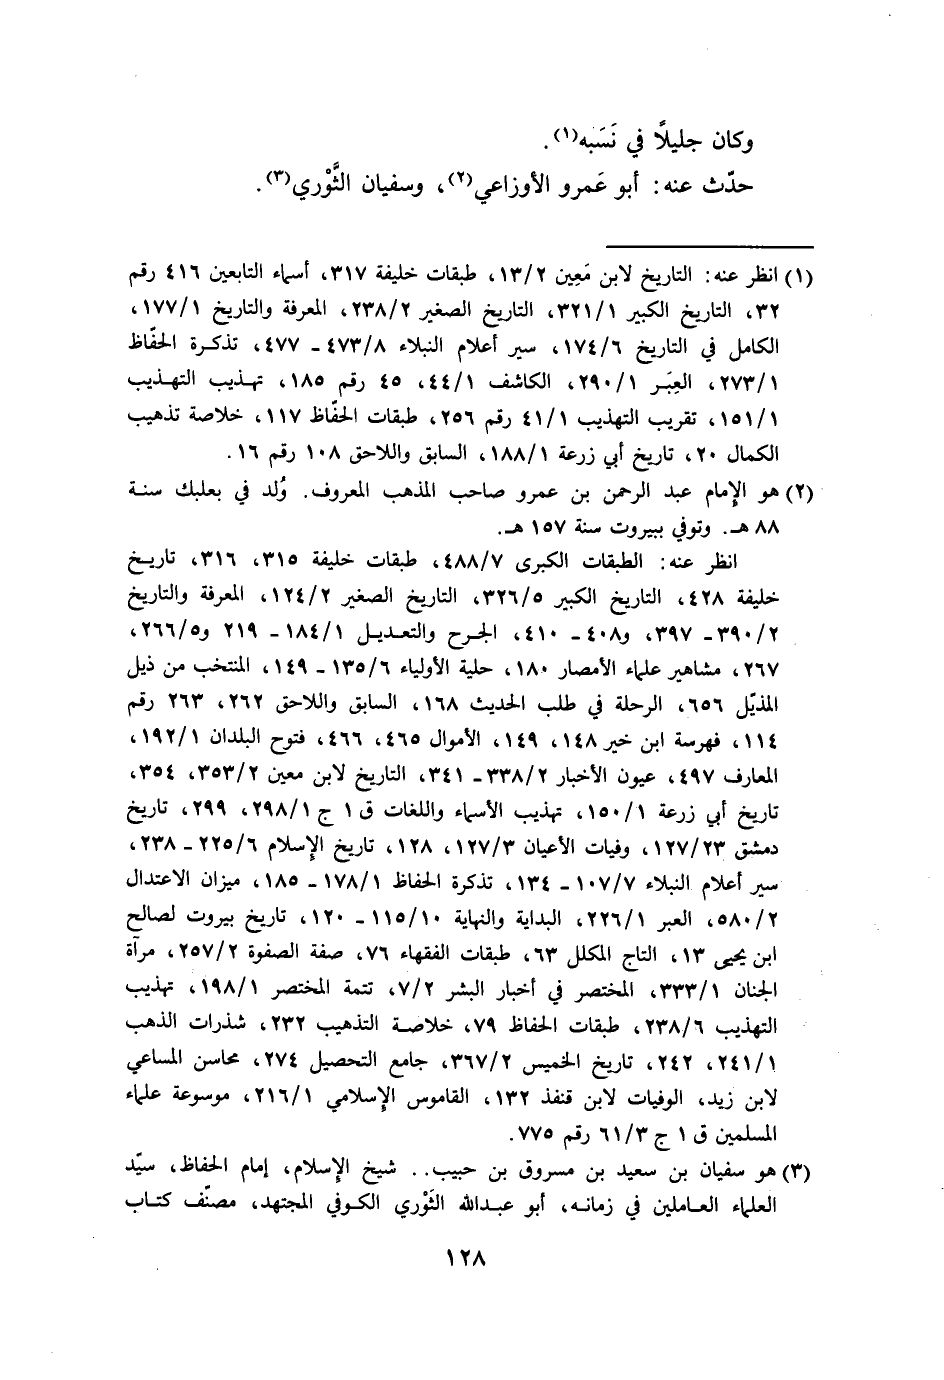 وكان جليلًا في نَسَبه(١).
حدّث عنه: أبو عَمرو الأوزاعي(٢)، وسفيان الثَّوْري(٣).
(١) انظر عنه: التاريخ لابن مَعِين ١٣/٢، طبقات خليفة ٣١٧، أسماء التابعين ٤١٦ رقم
٣٢، التاريخ الكبير ٣٢١/١، التاريخ الصغير ٢٣٨/٢، المعرفة والتاريخ ١٧٧/١،
الكامل في التاريخ ١٧٤/٦، سير أعلام النبلاء ٤٧٣/٨ ـ ٤٧٧، تذكرة الحفّاظ
٢٧٣/١، العِبَر ٢٩٠/١، الكاشف ٤٤/١، ٤٥ رقم ١٨٥، تهذيب التهذيب
١٥١/١، تقريب التهذيب ٤١/١ رقم ٢٥٦، طبقات الحفّاظ ١١٧، خلاصة تذهيب
الكمال ٢٠، تاريخ أبي زرعة ١٨٨/١، السابق واللاحق ١٠٨ رقم ١٦.
(٢) هو الإمام عبد الرحمن بن عمرو صاحب المذهب المعروف. وُلد في بعلبك سنة
٨٨ هـ. وتوفي ببيروت سنة ١٥٧ هـ.
انظر عنه: الطبقات الكبرى ٤٨٨/٧، طبقات خليفة ٣١٥، ٣١٦، تاريخ
خليفة ٤٢٨، التاريخ الكبير ٣٢٦/٥، التاريخ الصغير ١٢٤/٢، المعرفة والتاريخ
٣٩٠/٢ ـ ٣٩٧، و٤٠٨ ـ ٤١٠، الجرح والتعديل ١٨٤/١ ـ ٢١٩ و٢٦٦/٥،
٢٦٧، مشاهير علماء الأمصار ١٨٠، حلية الأولياء ١٣٥/٦ ـ ١٤٩، المنتخب من ذيل
المذيّل ٦٥٦، الرحلة في طلب الحديث ١٦٨، السابق واللاحق ٢٦٢، ٢٦٣ رقم
١١٤، فهرسة ابن خير ١٤٨، ١٤٩، الأموال ٤٦٥، ٤٦٦، فتوح البلدان ١٩٢/١،
المعارف ٤٩٧، عيون الأخبار ٣٣٨/٢ ـ ٣٤١، التاريخ لابن معين ٣٥٣/٢، ٣٥٤،
تاريخ أبي زرعة ١٥٠/١، تهذيب الأسماء واللغات ق ١ ج ٢٩٨/١، ٢٩٩، تاريخ
دمشق ١٢٧/٢٣، وفيات الأعيان ١٢٧/٣، ١٢٨، تاريخ الإسلام ٢٢٥/٦ ـ ٢٣٨،
سير أعلام النبلاء ١٠٧/٧ ـ ١٣٤، تذكرة الحفاظ ١٧٨/١ ـ ١٨٥، ميزان الاعتدال
٥٨٠/٢، العبر ٢٢٦/١، البداية والنهاية ١١٥/١٠ ـ ١٢٠، تاريخ بيروت لصالح
ابن يحيى ١٣، التاج المكلل ٦٣، طبقات الفقهاء ٧٦، صفة الصفوة ٢٥٧/٢، مرآة
الجنان ٣٣٣/١، المختصر في أخبار البشر ٧/٢، تتمة المختصر ١٩٨/١، تهذيب
التهذيب ٢٣٨/٦، طبقات الحفاظ ٧٩، خلاصة التذهيب ٢٣٢، شذرات الذهب
٢٤١/١، ٢٤٢، تاريخ الخميس ٣٦٧/٢، جامع التحصيل ٢٧٤، محاسن المساعي
لابن زيد، الوفيات لابن قنفذ ١٣٢، القاموس الإسلامي ٢١٦/١، موسوعة علماء
المسلمين ق ١ ج ٦١/٣ رقم ٧٧٥.
(٣) هو سفيان بن سعيد بن مسروق بن حبيب.. شيخ الإسلام، إمام الحفاظ، سيّد
العلماء العاملين في زمانه، أبو عبدالله الثَوْري الكوفي المجتهد، مصنّف كتاب
١٢٨